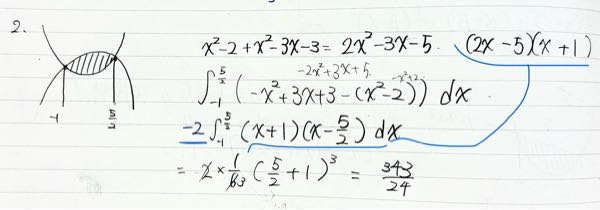 2.
x²-2+x²-3x-3=2x²-3x-5. (2x-5)(x+1)
-2x²+3x+5. -x²+2
∫_{-1}^{5/2} (-x²+3x+3-(x²-2)) dx
-1 5/2
-2∫_{-1}^{5/2} (x+1)(x-5/2) dx
= 2×1/63 (5/2+1)³ = 343/24